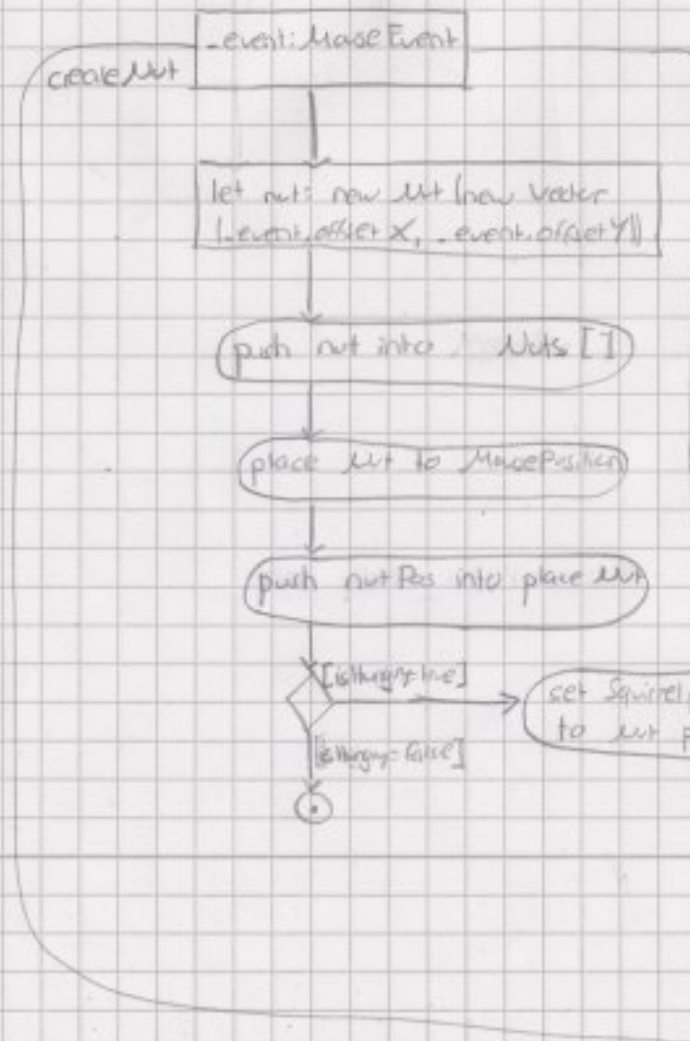 _event: MouseEvent
createNut
let nut: new Nut (new Vector
(_event.offsetX, _event.offsetY))
push nut into Nuts []
place Nut to MousePosition
push nutPos into place Nut
[isHungry=true]
set Squirrel
to Nut
[isHungry=false]